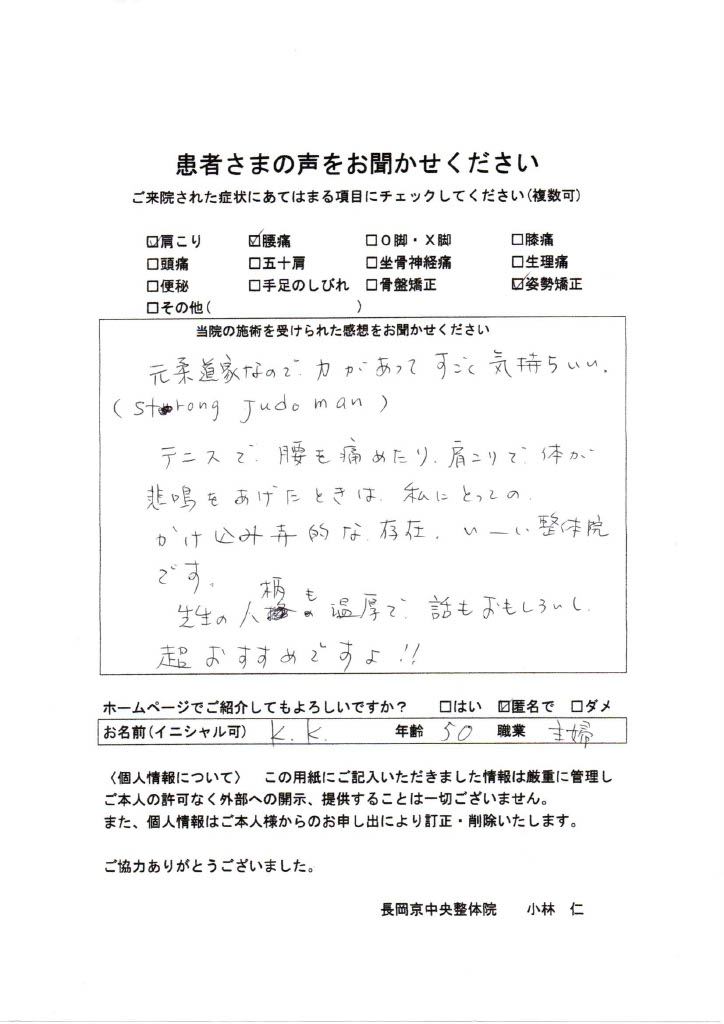 患者さまの声をお聞かせください
ご来院された症状にあてはまる項目にチェックしてください(複数可)
☑肩こり ☑腰痛 □O脚・X脚 □膝痛
□頭痛 □五十肩 □坐骨神経痛 □生理痛
□便秘 □手足のしびれ □骨盤矯正 ☑姿勢矯正
□その他( )
当院の施術を受けられた感想をお聞かせください
元柔道家なので、力があってすごく気持ちいい。
(strong Judo man)
テニスで、腰を痛めたり、肩こりで、体が
悲鳴をあげたときは、私にとっての、
かけ込み寺的な、存在、いーい整体院
です。
先生の人柄も温厚で、話もおもしろいし、
超おすすめですよ!!
ホームページでご紹介してもよろしいですか? □はい ☑匿名で □ダメ
お名前(イニシャル可) K.K. 年齢 50 職業 主婦
〈個人情報について〉 この用紙にご記入いただきました情報は厳重に管理し
ご本人の許可なく外部への開示、提供することは一切ございません。
また、個人情報はご本人様からのお申し出により訂正・削除いたします。
ご協力ありがとうございました。
長岡京中央整体院 小林 仁